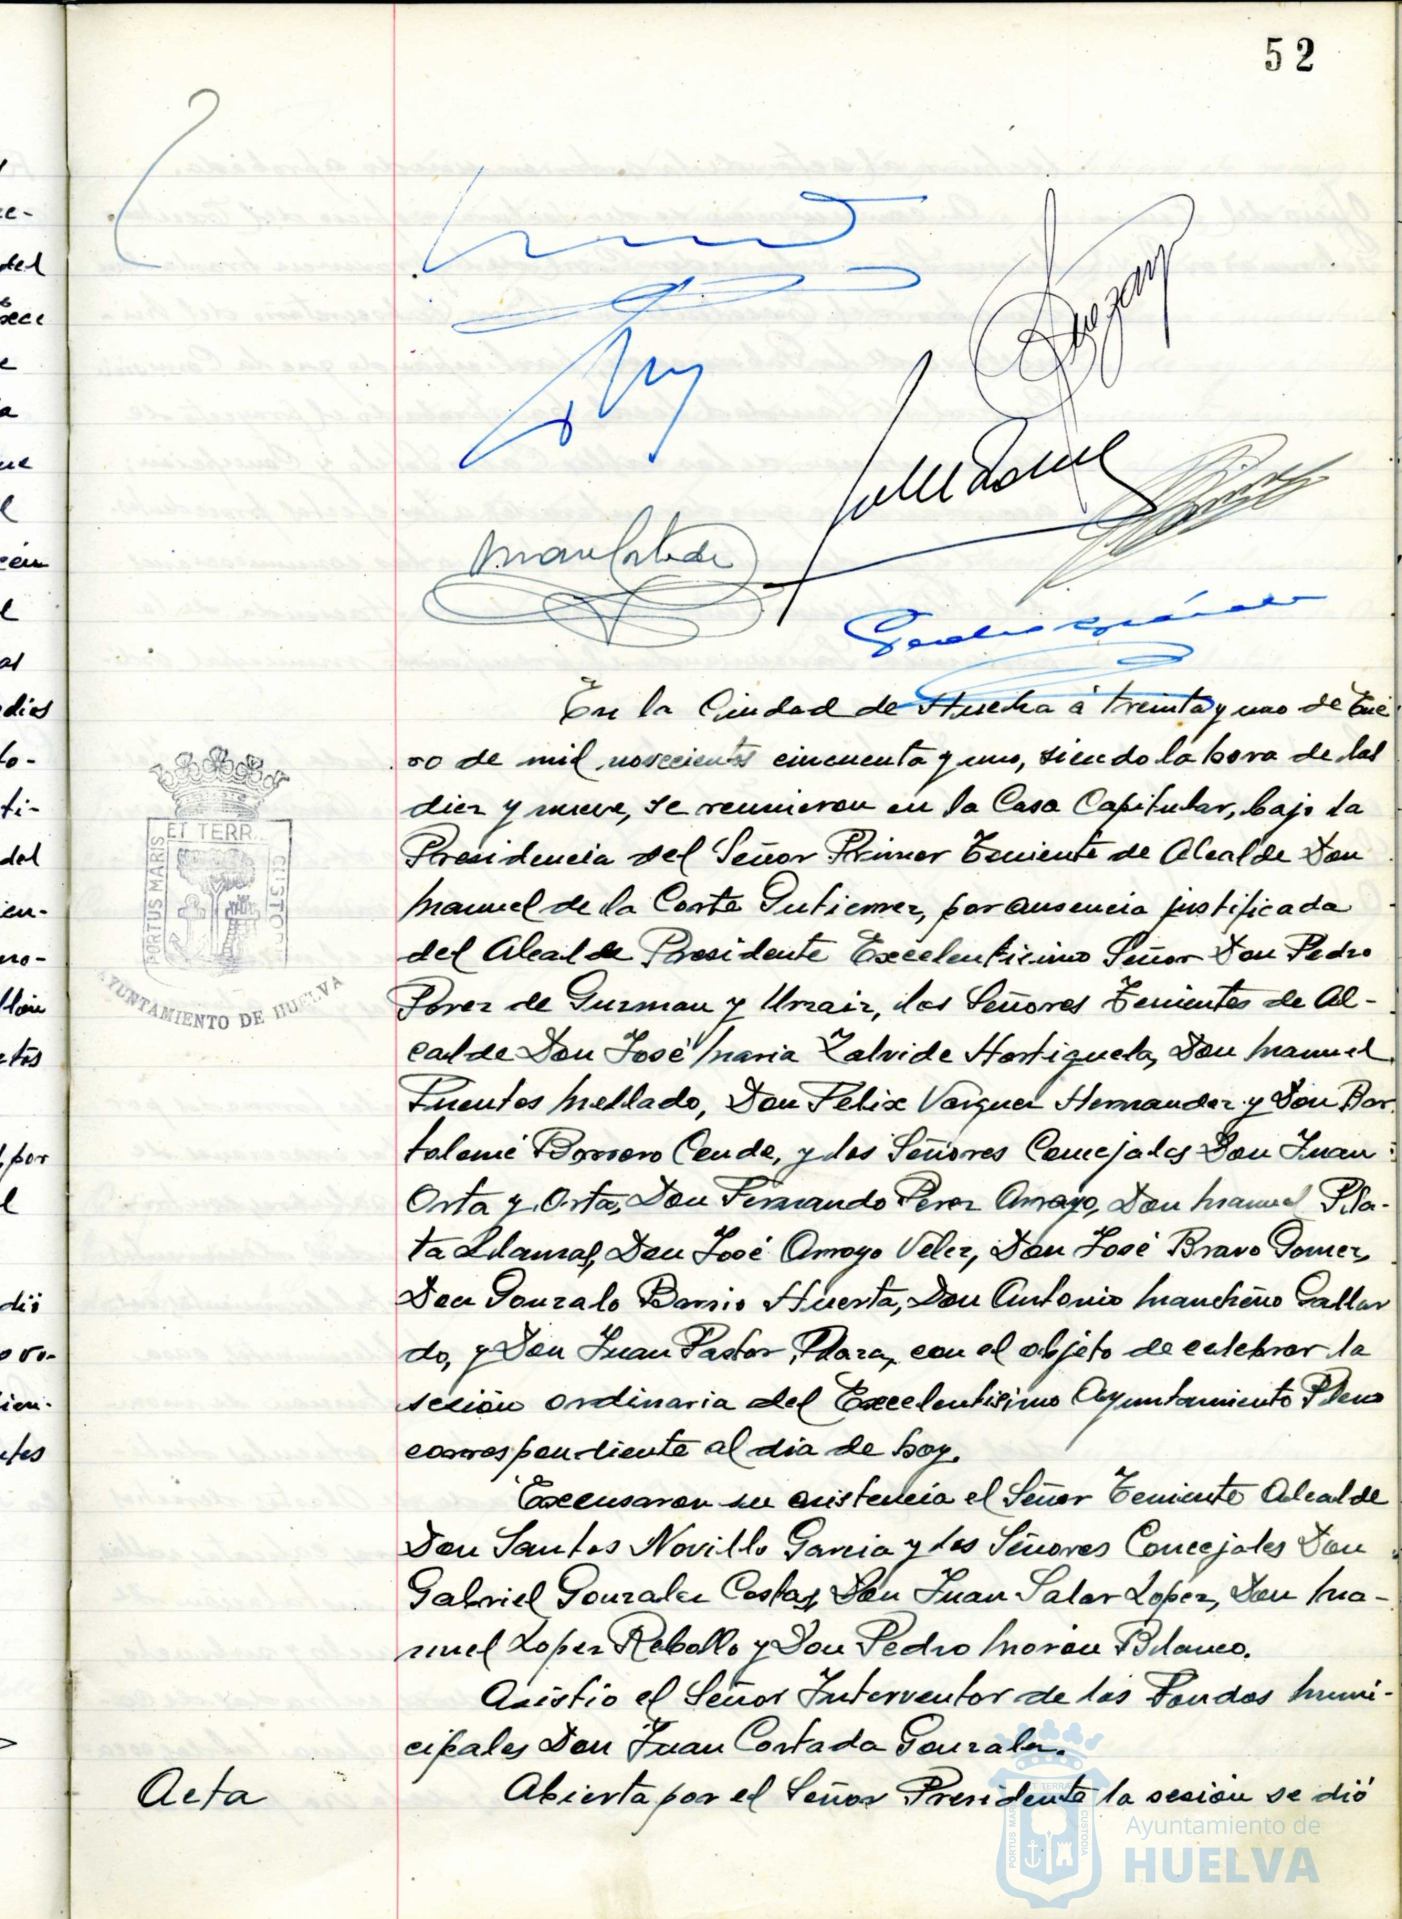 52
En la Ciudad de Huelva á treinta y uno de Ene
ro de mil novecientos cincuenta y uno, siendo la hora de las
diez y nueve, se reunieron en la Casa Capitular, bajo la
Presidencia del Señor Primer Teniente de Alcalde Don
Manuel de la Corte Gutierrez, por ausencia justificada
del Alcalde Presidente Excelentisimo Señor Don Pedro
Perez de Guzman y Urzaiz, los Señores Tenientes de Al-
calde Don José Maria Zalvide Hortiguela, Don Manuel
Puentes Mellado, Don Felix Vazquez Hernandez y Don Bar
tolomé Borrero Conde, y los Señores Concejales Don Juan
Orta y Orta, Don Fernando Perez Arroyo, Don Manuel Pla-
ta Llamas, Don José Arroyo Velez, Don José Bravo Gomez,
Don Gonzalo Barrio Huerta, Don Antonio Mancheño Gallar
do, y Don Juan Pastor Plaza, con el objeto de celebrar la
sesión ordinaria del Excelentisimo Ayuntamiento Pleno
correspondiente al dia de hoy.
Excusaron su asistencia el Señor Teniente Alcalde
Don Santos Novillo Garcia y los Señores Concejales Don
Gabriel Gonzalez Costas, Don Juan Salar Lopez, Don Ma-
nuel Lopez Rebollo y Don Pedro Morón Blanco.
Asistio el Señor Interventor de los Fondos Muni-
cipales Don Juan Cortada Gonzalez.
Acta
Abierta por el Señor Presidente la sesión se dió
PORTUS MARIS
ET TERR
CUSTO
AYUNTAMIENTO DE HUELVA
Ayuntamiento de
HUELVA